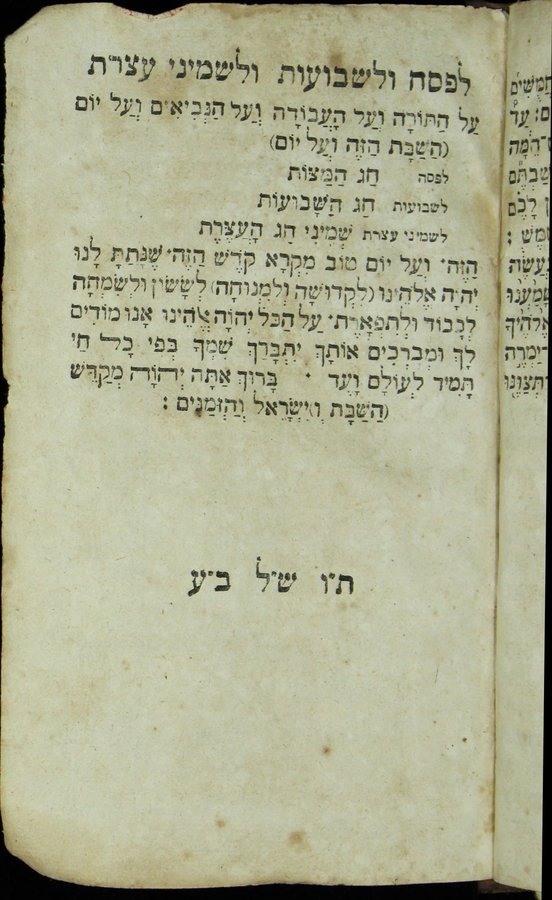 לפסח ולשבועות ולשמיני עצרת
עַל הַתּוֹרָה וְעַל הָעֲבוֹדָה וְעַל הַנְּבִיאִים וְעַל יוֹם
(הַשַּׁבָּת הַזֶּה וְעַל יוֹם)
לפסח חַג הַמַּצּוֹת
לשבועות חַג הַשָּׁבוּעוֹת
לשמיני עצרת שְׁמִינִי חַג הָעֲצֶרֶת
הַזֶּה וְעַל יוֹם טוֹב מִקְרָא קֹדֶשׁ הַזֶּה שֶׁנָּתַתָּ לָנוּ
יְהֹוָה אֱלֹהֵינוּ (לִקְדוּשָׁה וְלִמְנוּחָה) לְשָׂשׂוֹן וּלְשִׂמְחָה
לְכָבוֹד וּלְתִפְאָרֶת עַל הַכֹּל יְהֹוָה אֱלֹהֵינוּ אָנוּ מוֹדִים
לָךְ וּמְבָרְכִים אוֹתָךְ יִתְבָּרַךְ שִׁמְךָ בְּפִי כָּל חַי
תָּמִיד לְעוֹלָם וָעֶד בָּרוּךְ אַתָּה יְהֹוָה מְקַדֵּשׁ
(הַשַּׁבָּת וְ)יִשְׂרָאֵל וְהַזְּמַנִּים :
ת״ו ש״ל ב״ע